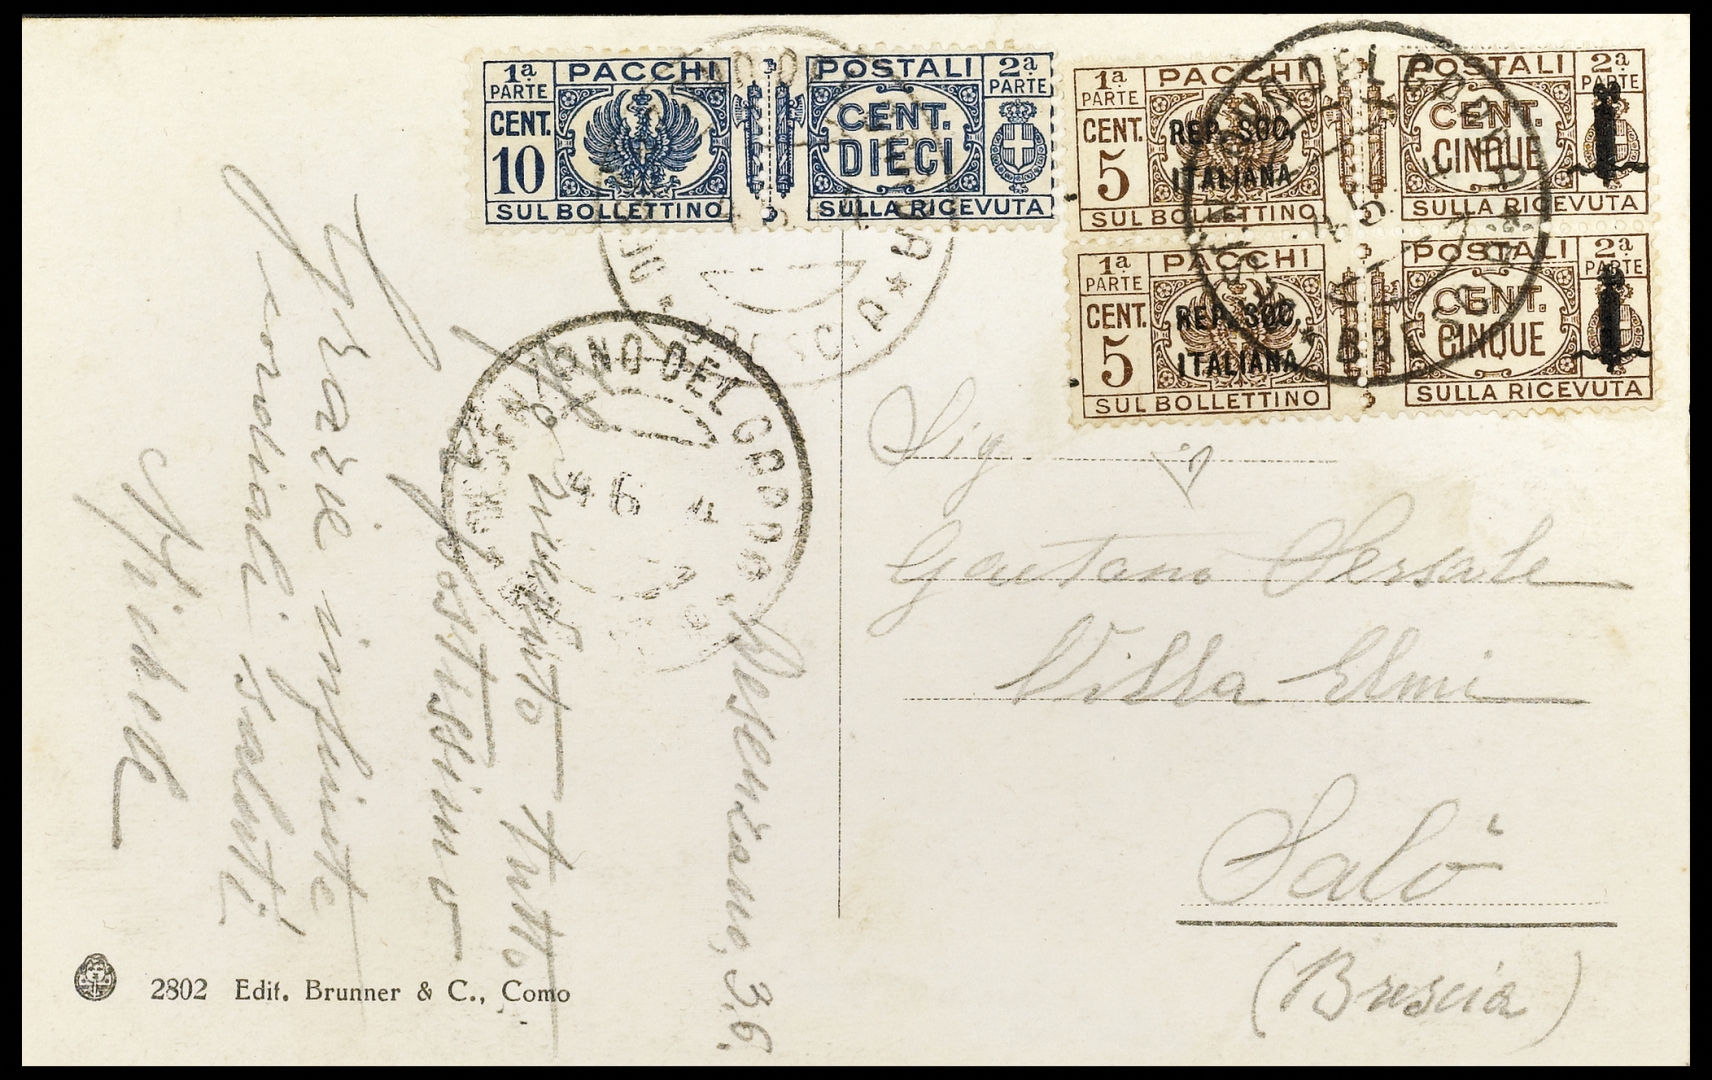 1ª PARTE PACCHI POSTALI 2ª PARTE
CENT. 10 CENT. DIECI
SUL BOLLETTINO SULLA RICEVUTA
1ª PARTE PACCHI POSTALI 2ª PARTE
CENT. 5 REP. SOC. ITALIANA CENT. CINQUE
SUL BOLLETTINO SULLA RICEVUTA
1ª PARTE PACCHI POSTALI 2ª PARTE
CENT. 5 REP. SOC. ITALIANA CENT. CINQUE
SUL BOLLETTINO SULLA RICEVUTA
DESENZANO DEL GARDA
4 6
DEL GARDA
BRESCIA
Desenzano, 3.6.
tutto
a postissimo
Grazie infinite
cordiali saluti
Sig.
Gaetano Sersale
Villa Elmi
Salò
(Brescia)
2802 Edit. Brunner & C., Como